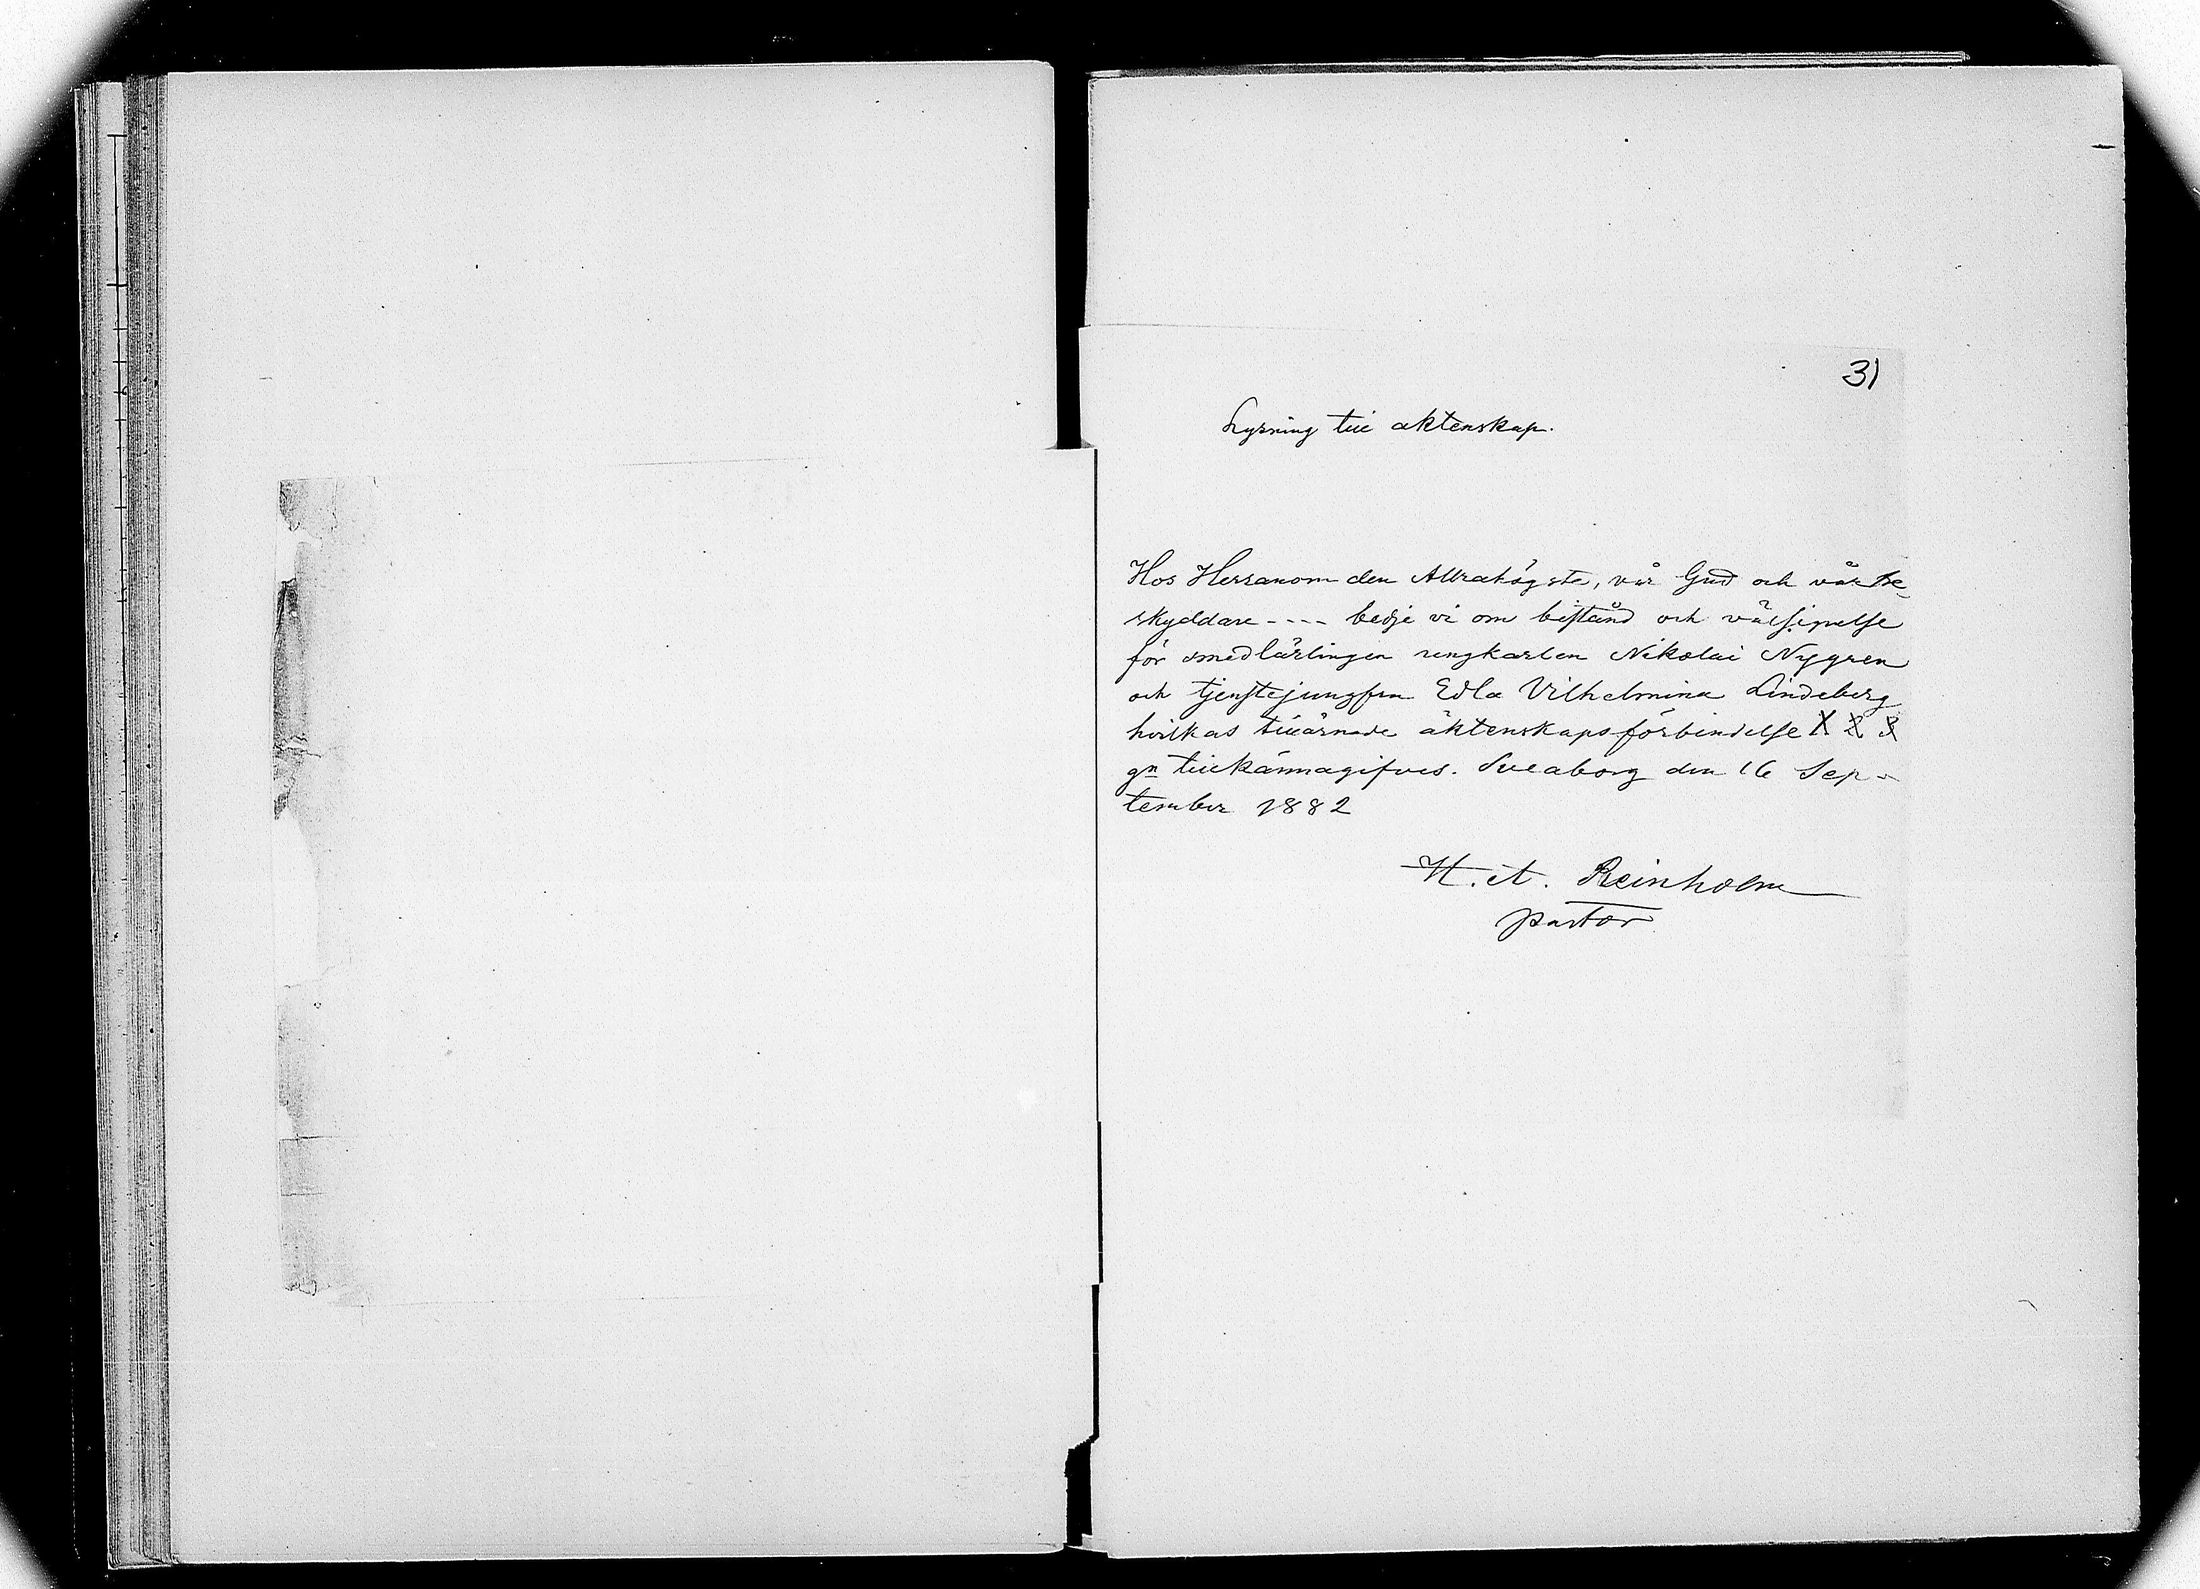 31
Lysning till äktenskap.
Hos Herranom den Allrahögste, vår Gud och vår be-
skyddare ---- bedje vi om bistånd och välsignelse
för smedlärlingen ungkarlen Nikolai Nygren
och tjenstejungfrun Edla Vilhelmina Lindeberg
hvilkas tillärnade äktenskapsförbindelse 1 2 3
gn tillkännagifves. Sveaborg den 16 Sep-
tember 1882
H. A. Reinholm
pastor